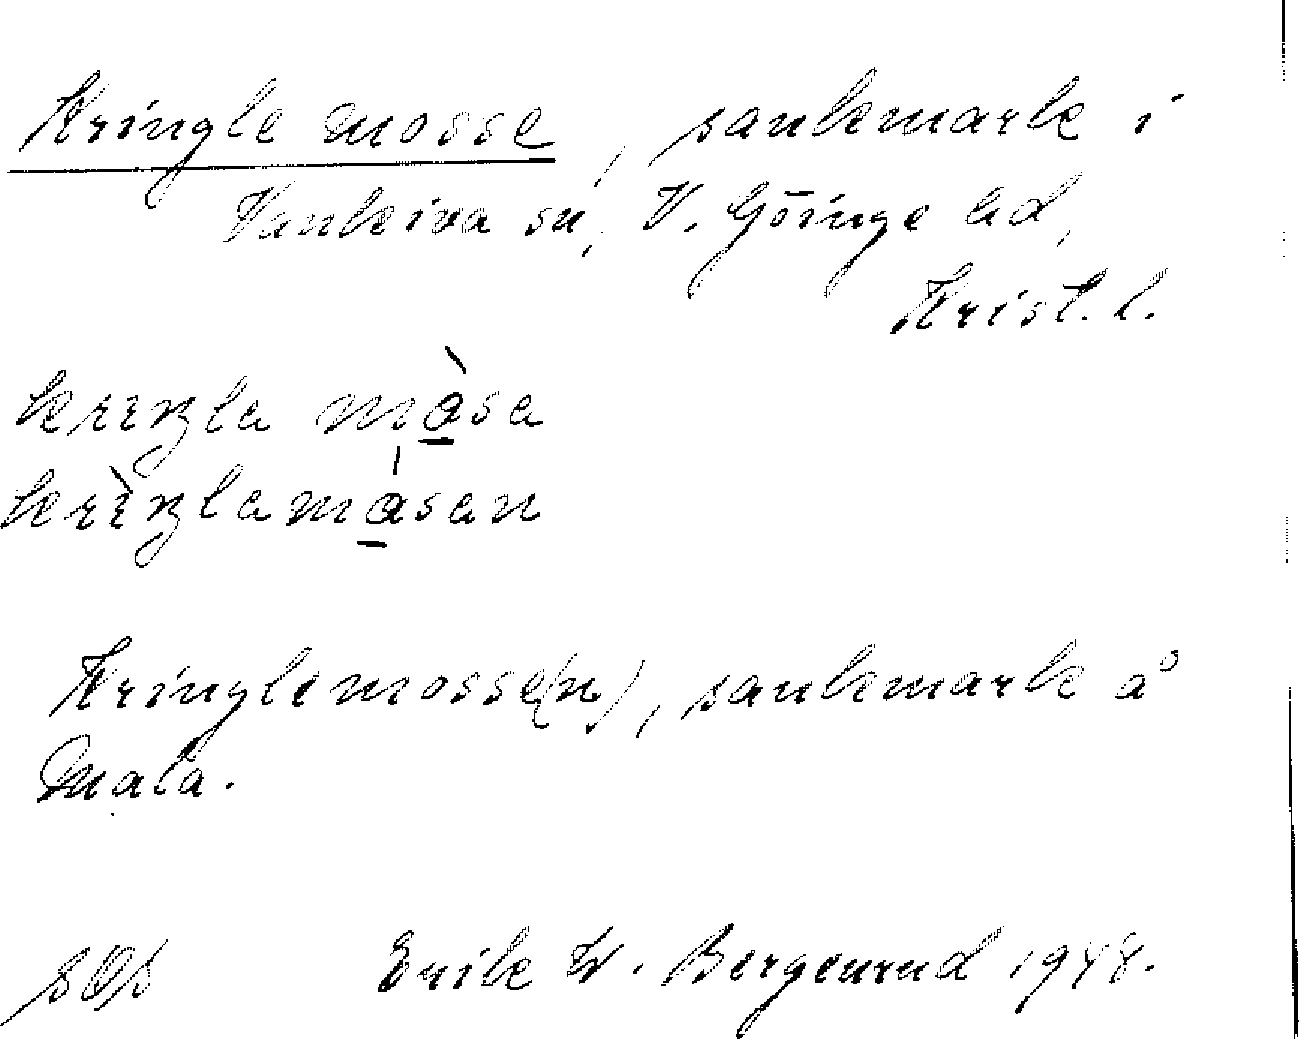 Kringle mosse, sankmark i
Vankiva sn, V. Göinge hd,
Krist. l.
krıŋla mòsa
krìŋlamósan
Kringlemosse(n), sankmark å
Mala.
Erik W. Bergenrud 1948.